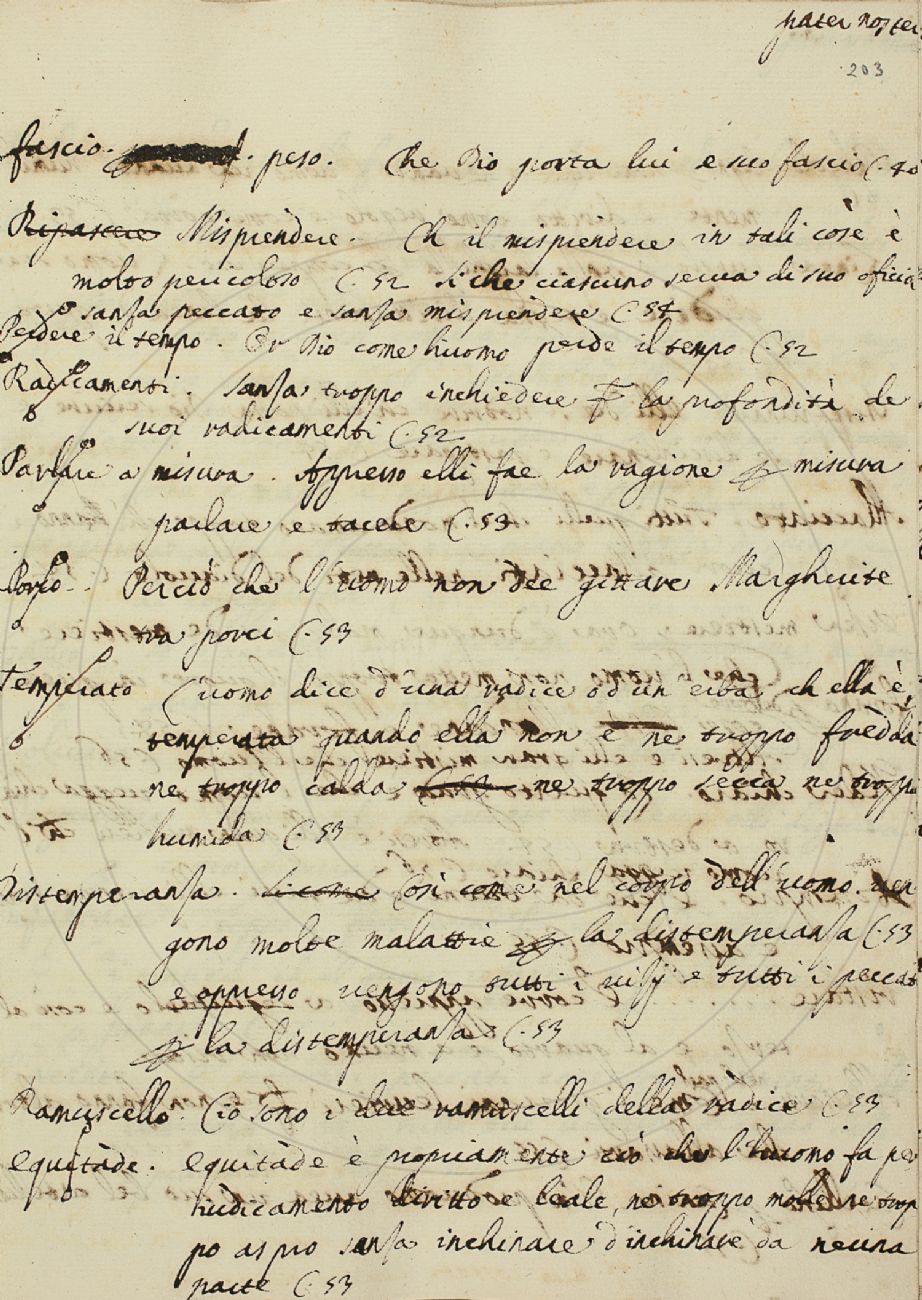 pater noster
203
fascio. peso. Che Dio porta lui e suo fascio C. 40
Ripascere Misprèndere. Ch il misprèndere in tali còse è
molto pericoloso C. 52 Si che ciascuno serva di suo oficio
sansa peccato e sansa misprèndere C. 54
Perdere il tempo. Or Dio come huomo perde il tempo C. 52
Radicamenti. Sansa troppo inchiedere la profondità de
suoi radicamenti C. 52
Parlare a misura. Appresso elli fae la ragione misura
parlare e tacere C. 53
Porco. Perciò che l'uomo non dee gittare Margherite
tra porci C. 53
Temperato L'uomo dice d'una radice o d'un erba ch ella è
temperata quando ella non è ne troppo frèdda
ne troppo calda C. 52 ne troppo secca ne tropp
humida C. 53
Distemperansa. Si come Così come nel corpo dell'uomo ven
gono molte malattie la distemperansa C. 53
e appresso vengono tutti i visij e tutti i peccat
la distemperansa C. 53
Ramuscello. Cio sono i due ramuscelli della radice C. 53
Equitàde. Equitàde è propriamente ciò che l'huomo fa per
iudicamento diritto e leale, ne troppo molle ne trop
po aspro sansa inchinare d'inchinare da neuna
parte C. 53